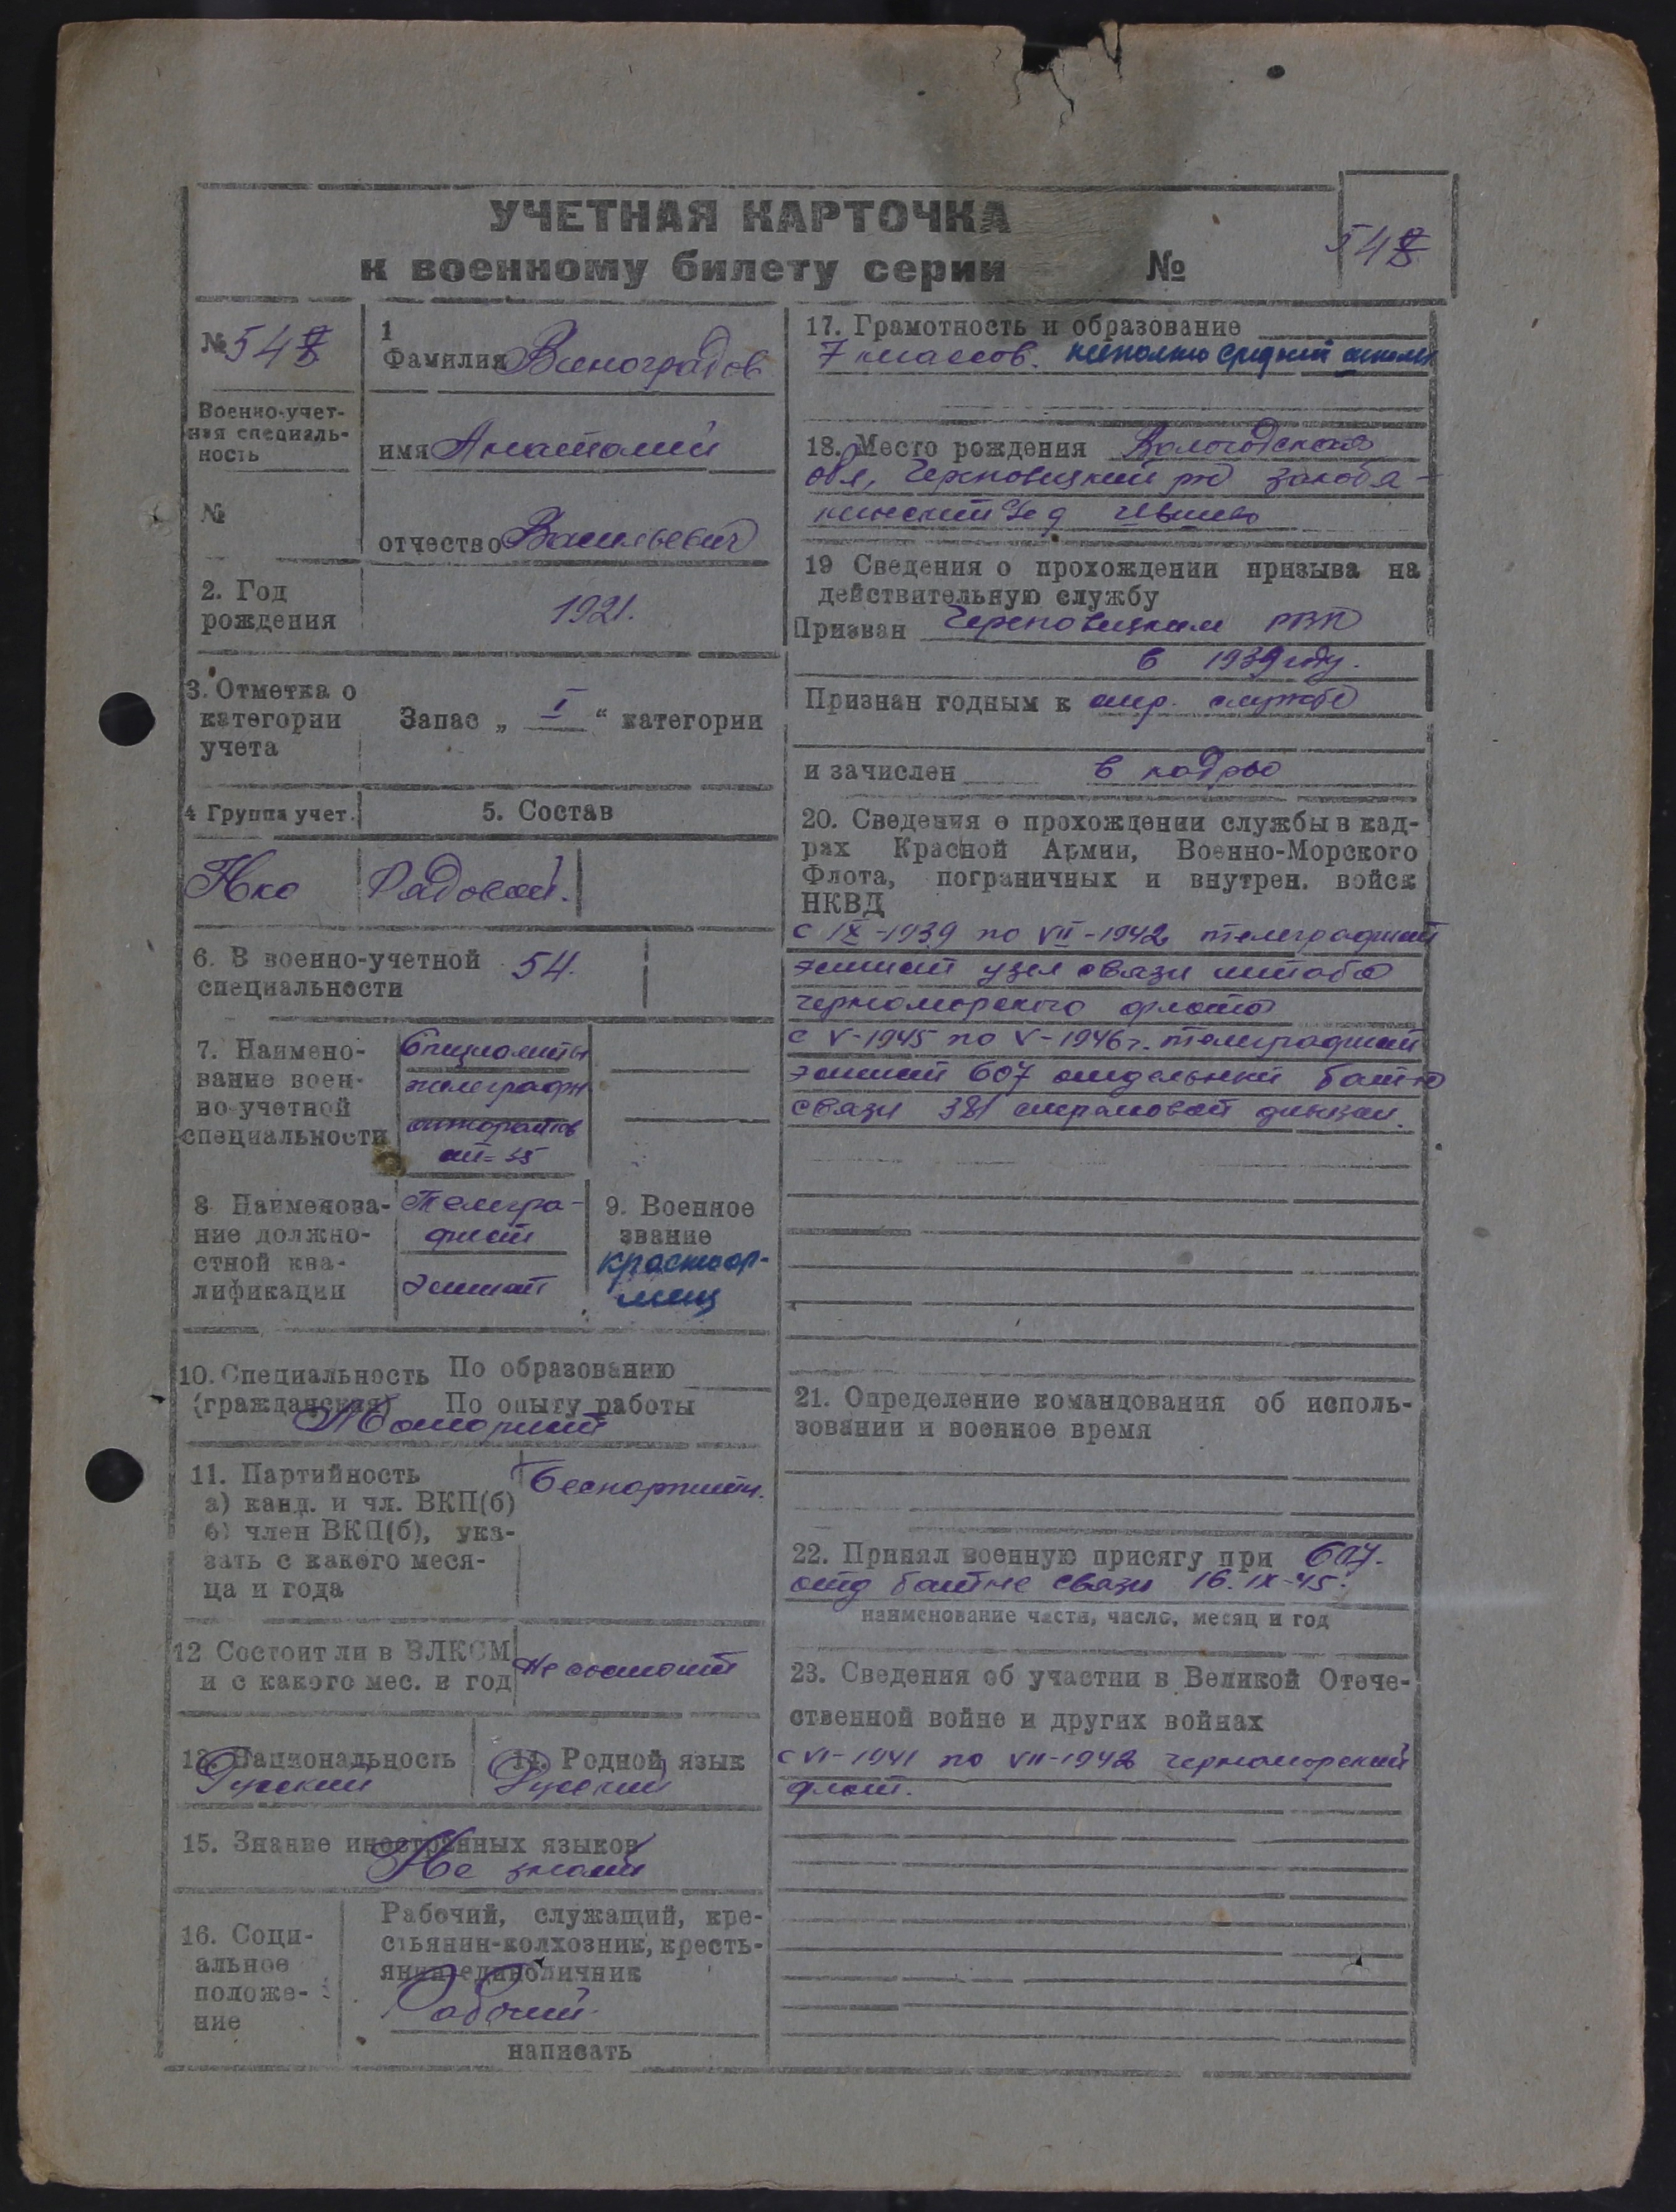 УЧЕТНАЯ КАРТОЧКА
к военному билету серии №
548
№ 548
Военно-учет-
ная специаль-
ность
№
1
Фамилия Виноградов
имя Анатолий
отчество Васильевич
2. Год
рождения
1921.
3. Отметка о
категории
учета
Запас „ I “ категории
4 Группа учет.
5. Состав
Нко
Рядовой.
6. В военно-учетной
специальности
54.
7. Наимено-
вание воен-
но-учетной
специальности
Специалисты
телеграфн
аппаратов
ст-35
8 Наименова-
ние должно-
стной ква-
лификации
Телегра-
фист
эстист
9. Военное
звание
красноар-
меец
10. Специальность По образованию
(гражданская) По опыту работы
Моторист
11. Партийность
а) канд. и чл. ВКП(б)
б) член ВКП(б), ука-
зать с какого меся-
ца и года
беспартийн.
12 Состоит ли в ВЛКСМ
и с какого мес. и год
не состоит
13. Национальность
Русский
14. Родной язык
Русский
15. Знание иностранных языков
Не знает
16. Соци-
альное
положе-
ние
Рабочий, служащий, кре-
стьянин-колхозник, кресть-
янин-единоличник
Рабочий
написать
17. Грамотность и образование
7 классов. неполно средней школы
18. Место рождения Вологодская
обл, Череповецкий р-
кинский с/с д
19 Сведения о прохождении призыва на
действительную службу
Призван Череповецким РВК
в 1939 году.
Признан годным к стр. службе
и зачислен в кадры
20. Сведения о прохождении службы в кад-
рах Красной Армии, Военно-Морского
Флота, пограничных и внутрен. войск
НКВД
с IX-1939 по VII-1942 телеграфист
эстист узел связи штаба
черноморского флота
с V-1945 по V-1946 г. телеграфист
эстист 607 отдельный бат-н
связи 381 стрелковой дивизии.
21. Определение командования об исполь-
зовании и военное время
22. Принял военную присягу при 607.
отд бат-не связи 16. IX-45.
наименование части, число, месяц и год
23. Сведения об участии в Великой Отече-
ственной войне и других войнах
с VI-1941 по VII-1942 черноморский
флот.